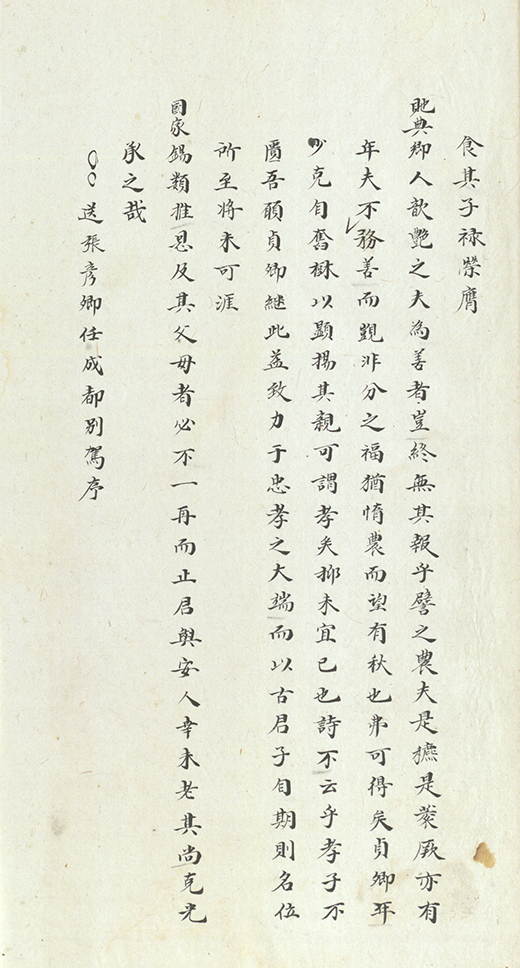 食其子禄榮膺
貤典鄉人歆艷之夫為善者豈終無其報乎譬之農夫是穮是蓘厥亦有
年夫不務善而覬非分之福猶惰農而望有秋也弗可得矣貞卿年
少克自奮樹以顯揚其親可謂孝矣抑未宜已也詩不云乎孝子不
匱吾願貞卿繼此益致力于忠孝之大端而以古君子自期則名位
所至將未可涯
國家錫類推恩及其父母者必不一再而止君與安人幸未老其尚克光
承之哉
○○送張彥卿任成都別駕序